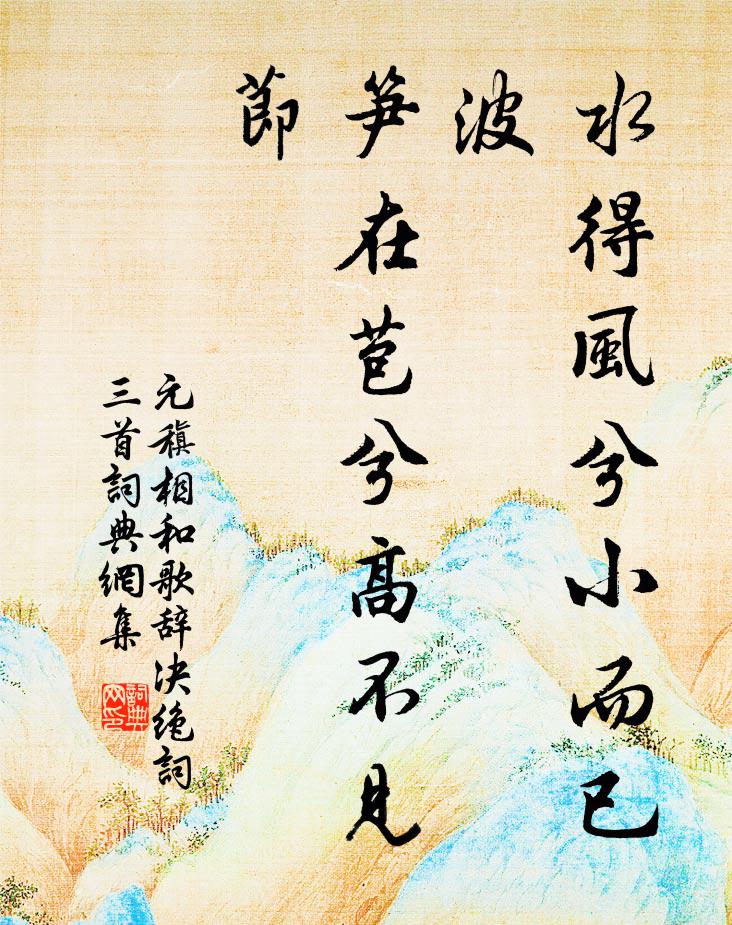 水得風兮小而已
波
笋在苞兮高不見
節
元稹相和歌辞决絶詞
三首詞典網集
詞典
网印